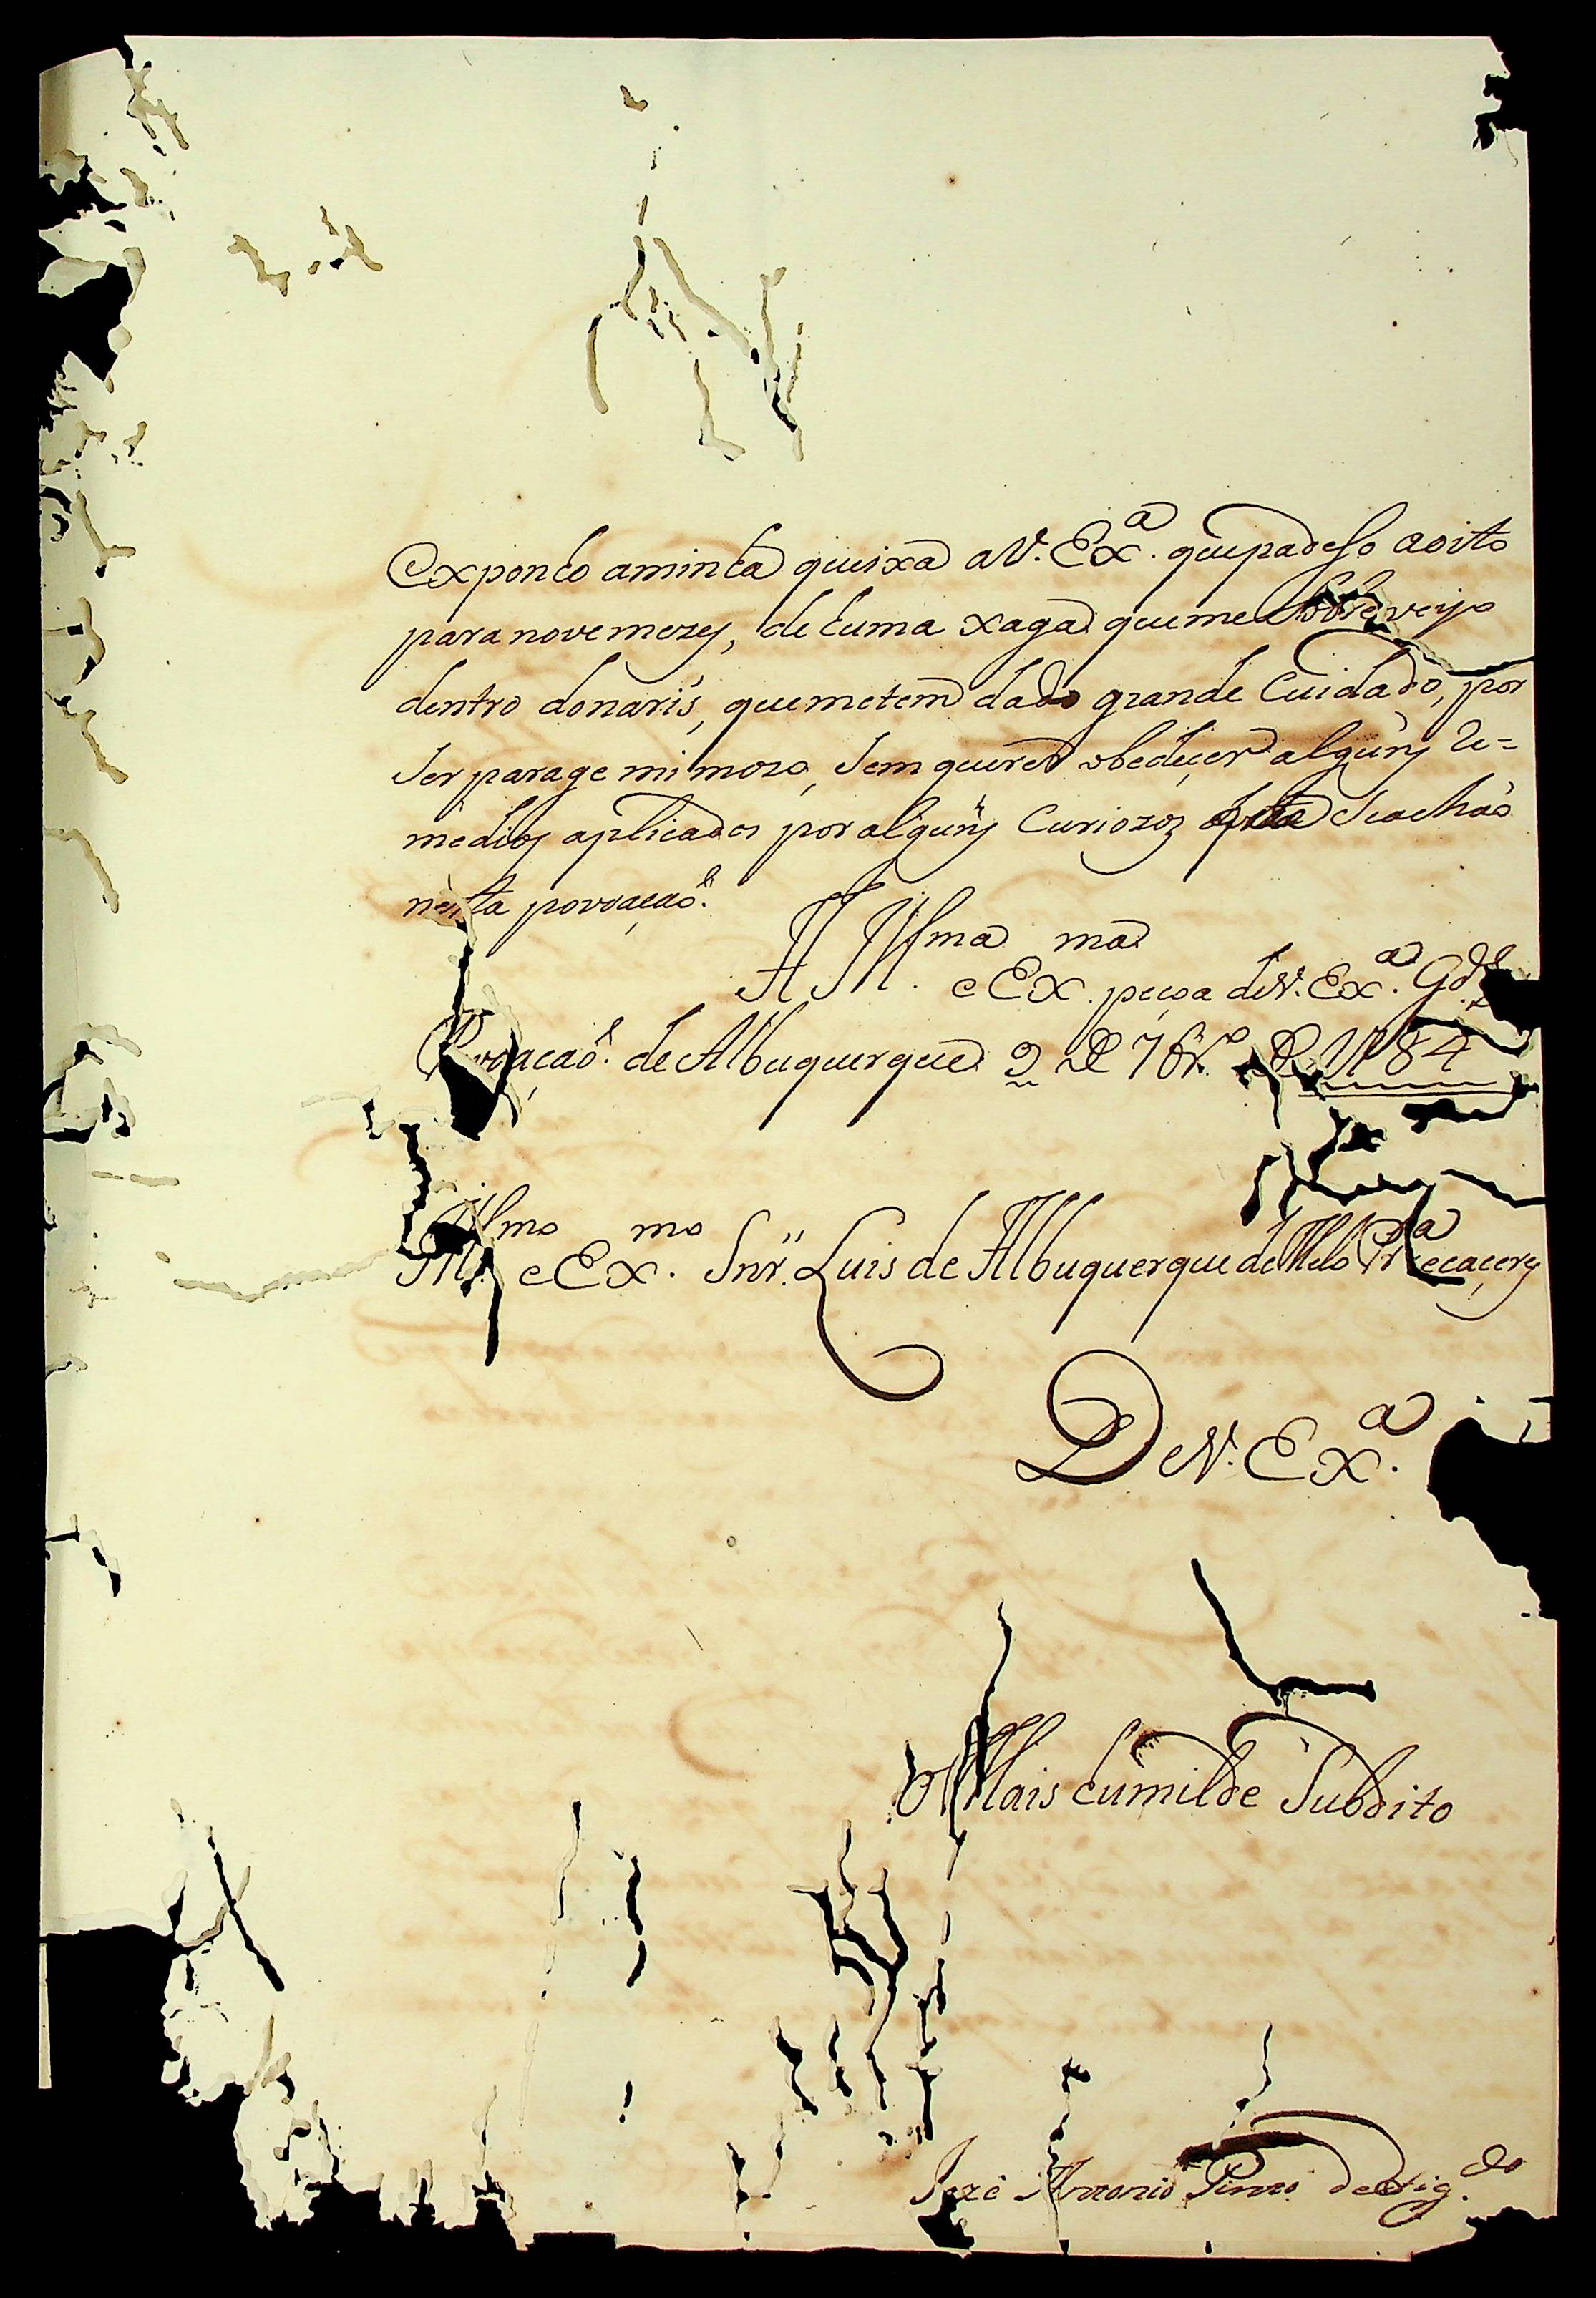 Exponho aminha queixa aV. Ex.ª quepadeso aoito
para nove mezes, de huma xaga que me sobreveyo
dentro donaris, que me tem dado grande Cuidado, por
Ser parage mimoza, Sem querer obedeçer alguñs Re=
medios aplicados por alguñs Curiozos Seachaõ
nesta povoaçaõ.
A Ill.ma e Ex.ma peçoa deV. Ex.ª G.de
Povoaçaõ de Albuquerque 2 de 7br.º de 1784
Ill.mo e Ex.mo Snr. Luis de Albuquerque de Mello Pr.ª ecaçeres
De V. Ex.ª
O Mais humilde Subdito
Joze Antonio Pinto de Fig.do